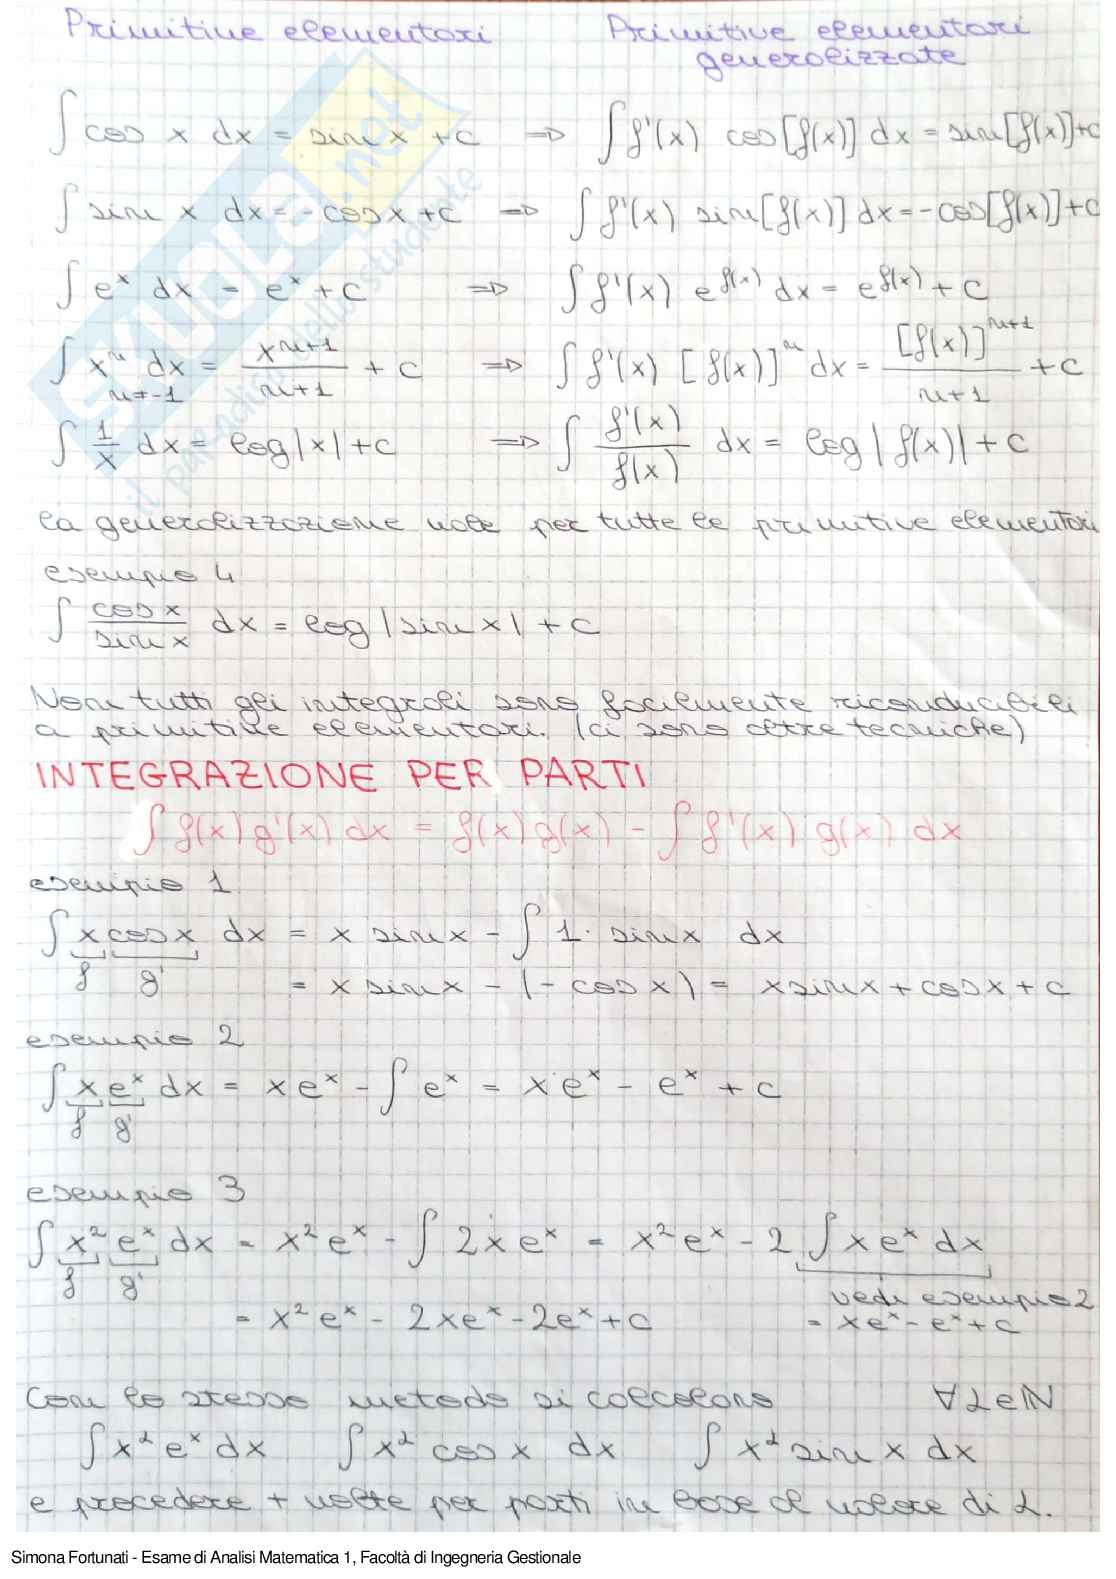 Primitive elementari Primitive elementari
generalizzate
∫ cos x dx = sin x + c ⇒ ∫ f'(x) cos[f(x)] dx = sin[f(x)]+c
∫ sin x dx = -cos x + c ⇒ ∫ f'(x) sin[f(x)] dx = -cos[f(x)]+c
∫ e^x dx = e^x + c ⇒ ∫ f'(x) e^f(x) dx = e^f(x) + c
∫ x^n dx = x^(n+1)/(n+1) + c ⇒ ∫ f'(x) [f(x)]^n dx = [f(x)]^(n+1)/(n+1) + c
n≠-1
∫ 1/x dx = log|x| + c ⇒ ∫ f'(x)/f(x) dx = log|f(x)| + c
la generalizzazione vale per tutte le primitive elementari
esempio 4
∫ cos x/sin x dx = log|sin x| + c
Non tutti gli integrali sono facilmente riconducibili
a primitive elementari. (ci sono altre tecniche)
INTEGRAZIONE PER PARTI
∫ f(x) g'(x) dx = f(x) g(x) - ∫ f'(x) g(x) dx
esempio 1
∫ x cos x dx = x sin x - ∫ 1· sin x dx
f g' = x sin x - (-cos x) = x sin x + cos x + c
esempio 2
∫ x e^x dx = x e^x - ∫ e^x = x e^x - e^x + c
f g'
esempio 3
∫ x² e^x dx = x² e^x - ∫ 2x e^x = x² e^x - 2 ∫ x e^x dx
f g' vedi esempio 2
= x² e^x - 2x e^x - 2e^x + c = x e^x - e^x + c
Con lo stesso metodo si calcolano ∀ α ∈ ℕ
∫ x^α e^x dx ∫ x^α cos x dx ∫ x^α sin x dx
e procedere + volte per parti in base al valore di α.
Simona Fortunati - Esame di Analisi Matematica 1, Facoltà di Ingegneria Gestionale
SKUOLA.net
il paradiso dello studente